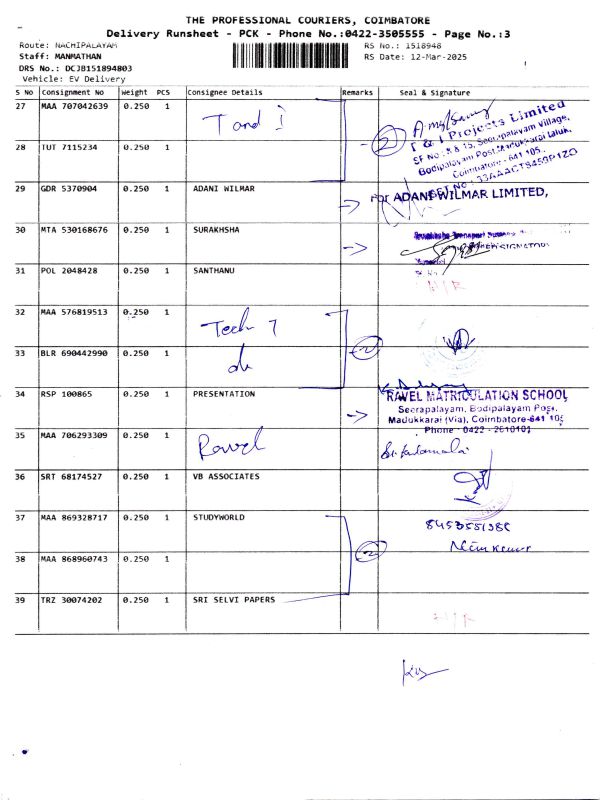 THE PROFESSIONAL COURIERS, COIMBATORE
Delivery Runsheet - PCK - Phone No.:0422-3505555 - Page No.:3
Route: NACHIPALAYAM
RS No.: 1518948
Staff: MANMATHAN
RS Date: 12-Mar-2025
DRS No.: DCJB151894803
Vehicle: EV Delivery
S NO Consignment No Weight PCS Consignee Details Remarks Seal & Signature
27 MAA 707042639 0.250 1 T and I
T & I Projects Limited
SF No. 8 15, Seerapalayam Village,
Bodipalayam Post, Madukkarai Taluk,
Coimbatore - 641 105.
2
28 TUT 7115234 0.250 1
29 GDR 5370904 0.250 1 ADANI WILMAR
For ADANI WILMAR LIMITED,
30 MTA 530168676 0.250 1 SURAKHSHA
31 POL 2048428 0.250 1 SANTHANU
N/R
32 MAA 576819513 0.250 1 Tech 7
33 BLR 690442990 0.250 1 do 2
34 RSP 100865 0.250 1 PRESENTATION
RAVEL MATRICULATION SCHOOL
Seerapalayam, Bodipalayam Post,
Madukkarai (Via), Coimbatore-641 105
Phone : 0422 - 2610101
35 MAA 706293309 0.250 1 Ravel
36 SRT 68174527 0.250 1 VB ASSOCIATES
37 MAA 869328717 0.250 1 STUDYWORLD
2
38 MAA 868960743 0.250 1
39 TRZ 30074202 0.250 1 SRI SELVI PAPERS
N/R